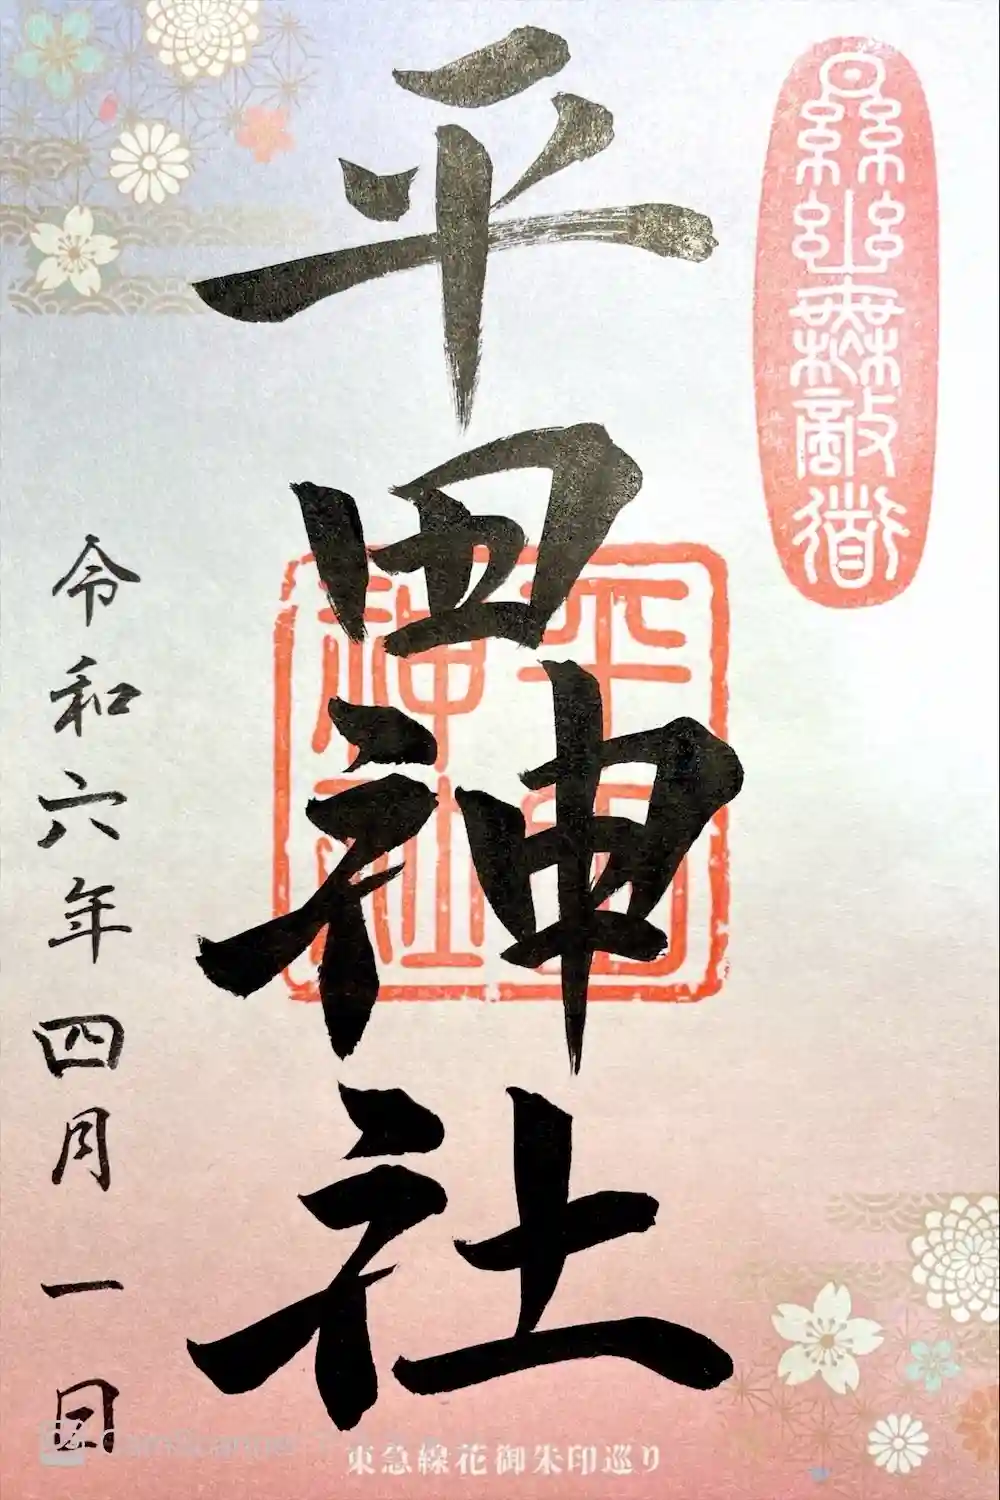 顯幽無敵道
平田神社
平田神社
令和六年四月一日
東急線花御朱印巡り
CamScanner